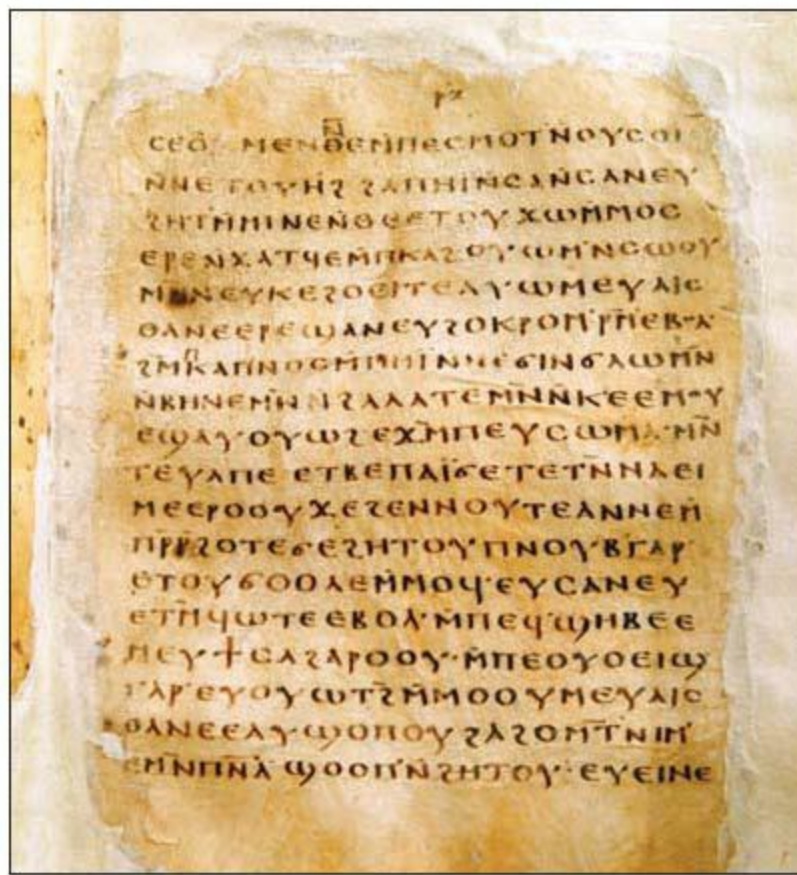 ⲥⲉⲟ̂ ⲙⲉⲛⲛ̄ⲑⲉⲙ̄ⲡⲉⲥⲙⲟⲧⲛ̄ⲟⲩⲥⲟⲓ
ⲛ̄ⲛⲉⲧⲟⲩⲏϩϩⲁⲡⲏⲓⲛ̄ⲥⲁⲛ̄ⲥⲁⲛⲉⲩ
ϩⲏⲧⲙ̄ⲙⲓⲛⲉⲛ̄ⲑⲉⲉⲧⲟⲩϫⲱⲙ̄ⲙⲟⲥ
ⲉⲣⲉⲛ̄ϫⲁⲧϥⲉⲙ̄ⲡⲕⲁϩⲟⲩⲱⲙⲛ̄ⲥⲱⲟⲩ
ⲙⲛ̄ⲛⲉⲩⲕⲉϩⲟⲉⲓⲧⲉⲁⲩⲱⲙⲉⲩⲁⲓⲥ
ⲑⲁⲛⲉⲉⲣⲉϣⲁⲛⲉⲩϩⲟⲕⲣⲟⲙⲣⲙ̄ⲉⲃⲟⲗ
ϩⲙ̄ⲡⲕⲁⲡⲛⲟⲥⲙ̄ⲡⲏⲓ ⲛ̄ϭⲉϭⲓⲛϭⲗⲱⲙⲛ̄
ⲛ̄ⲃⲏⲛⲉⲙⲛ̄ⲛ̄ϩⲁⲗⲁⲧⲉⲙⲛ̄ⲛ̄ⲕⲉⲉⲙⲟⲩ
ⲉϣⲁⲩⲟⲩⲱϩⲉϫⲙ̄ⲡⲉⲩⲥⲱⲙⲁ·ⲙⲛ̄
ⲧⲉⲩⲁⲡⲉ ⲉⲧⲃⲉⲡⲁⲓ̈ϭⲉⲧⲉⲧⲛ̄ⲛⲁⲉⲓ
ⲙⲉⲉⲣⲟⲟⲩϫⲉϩⲉⲛⲛⲟⲩⲧⲉⲁⲛⲛⲉⲙ̄
ⲡⲣ̄ⲣ̄ϩⲟⲧⲉϭⲉϩⲏⲧⲟⲩⲡⲛⲟⲩⲃⲅⲁⲣ
ⲉⲧⲟⲩϭⲟⲟⲗⲉⲙ̄ⲙⲟϥ·ⲉⲩⲥⲁⲛⲉⲩ
ⲉⲧⲙ̄ϥⲱⲧⲉⲉⲃⲟⲗ·ⲙ̄ⲡⲉϥϣⲏⲃⲉⲉ
ⲙⲉⲩϯⲥⲁϩⲁⲣⲟⲟⲩ·ⲙ̄ⲡⲉⲟⲩⲟⲉⲓϣ
ⲅⲁⲣ·ⲉⲩⲟⲩⲱⲧϩⲙ̄ⲙⲟⲟⲩⲙⲉⲩⲁⲓⲥ
ⲑⲁⲛⲉⲉⲁⲩϣⲟⲡⲟⲩϩⲁϩⲟⲙⲧ̄ⲛⲓⲙ
ⲉⲙⲛ̄ⲡⲛ̄ⲁ̄ϣⲟⲟⲡⲛ̄ϩⲏⲧⲟⲩ·ⲉⲩⲉⲓⲛⲉ